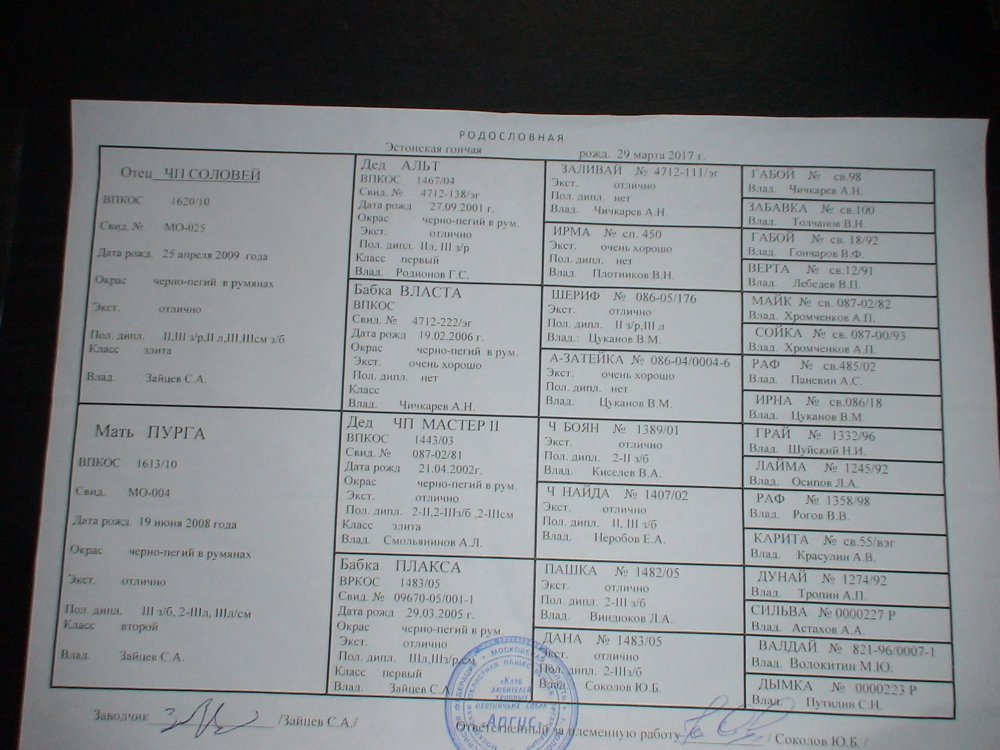 РОДОСЛОВНАЯ
Эстонская гончая рожд. 29 марта 2017 г.
Отец ЧП СОЛОВЕЙ
ВПКОС 1620/10
Свид. № МО-025
Дата рожд. 25 апреля 2009 года
Окрас черно-пегий в румянах
Экст. отлично
Пол. дипл. II,III з/р.II л,III,IIIсм з/б
Класс элита
Влад. Зайцев С.А.
Мать ПУРГА
ВПКОС 1613/10
Свид. МО-004
Дата рожд. 19 июня 2008 года
Окрас черно-пегий в румянах
Экст. отлично
Пол. дипл. III з/б, 2-IIIл, IIIл/см
Класс второй
Влад. Зайцев С.А.
Дед АЛЬТ
ВПКОС 1467/04
Свид. № 4712-138/эг
Дата рожд 27.09.2001 г.
Окрас черно-пегий в рум.
Экст. отлично
Пол. дипл. IIл, III з/р
Класс первый
Влад. Родионов Г.С.
Бабка ВЛАСТА
ВПКОС
Свид. № 4712-222/эг
Дата рожд 19.02.2006 г.
Окрас черно-пегий в рум.
Экст. очень хорошо
Пол. дипл. нет
Класс
Влад. Чичкарев А.Н.
Дед ЧП МАСТЕР II
ВПКОС 1443/03
Свид. № 087-02/81
Дата рожд 21.04.2002г.
Окрас черно-пегий в рум.
Экст. отлично
Пол. дипл. 2-II,2-IIIз/б ,2-IIIсм
Класс элита
Влад. Смольянинов А.Л.
Бабка ПЛАКСА
ВРКОС 1483/05
Свид. № 09670-05/001-1
Дата рожд 29.03.2005 г.
Окрас черно-пегий в рум
Экст. отлично
Пол. дипл. IIIл.III з/р,см
Класс первый
Влад. Зайцев С.А
ЗАЛИВАЙ № 4712-111/эг
Экст. отлично
Пол. дипл. нет
Влад. Чичкарев А.Н.
ИРМА № сп. 450
Экст. очень хорошо
Пол. дипл. нет
Влад. Плотников В.И.
ШЕРИФ № 086-05/176
Экст. отлично
Пол. дипл. II з/р,III л
Влад.: Цуканов В.М.
А-ЗАТЕЙКА № 086-04/0004-6
Экст. очень хорошо
Пол. дипл. нет
Влад. Цуканов В.М.
Ч БОЯН № 1389/01
Экст. отлично
Пол. дипл. 2-II з/б
Влад. Киселев В.А.
Ч НАЙДА № 1407/02
Экст. отлично
Пол. дипл. II, III з/б
Влад. Неробов Е.А.
ПАШКА № 1482/05
Экст. отлично
Пол. дипл. 2-III з/б
Влад. Виндюков Л.А.
ДАНА № 1483/05
Экст. отлично
Пол. дипл. 2-IIIз/б
Влад. Соколов Ю.Б.
ГАБОЙ № св.98
Влад. Чичкарев А.Н.
ЗАБАВКА № св.100
Влад. Толчанов В.Н.
ГАБОЙ № св. 18/92
Влад. Гончаров В.Ф.
ВЕРТА № св.12/91
Влад. Лебедев В.П.
МАЙК № св. 087-02/82
Влад. Хромченков А.П.
СОЙКА № св. 087-00/93
Влад. Хромченков А.П.
РАФ № св.485/02
Влад. Паневин А.С.
ИРНА № св.086/18
Влад. Цуканов В.М.
ГРАЙ № 1332/96
Влад. Шуйский Н.И.
ЛАЙМА № 1245/92
Влад. Осипов Л.А.
РАФ № 1358/98
Влад. Рогов В.В.
КАРИТА № св.55/вэг
Влад. Красулин А.В.
ДУНАЙ № 1274/92
Влад. Тропин А.П.
СИЛЬВА № 0000227 Р
Влад. Астахов А.А.
ВАЛДАЙ № 821-96/0007-1
Влад. Волокитин М.Ю.
ДЫМКА № 0000223 Р
Влад. Путилин С.Н.
Заводчик /Зайцев С.А./
Ответственный за племенную работу / Соколов Ю.Б. /
«Клуб
любителей
кровных
охотничьих собак
Аргус»